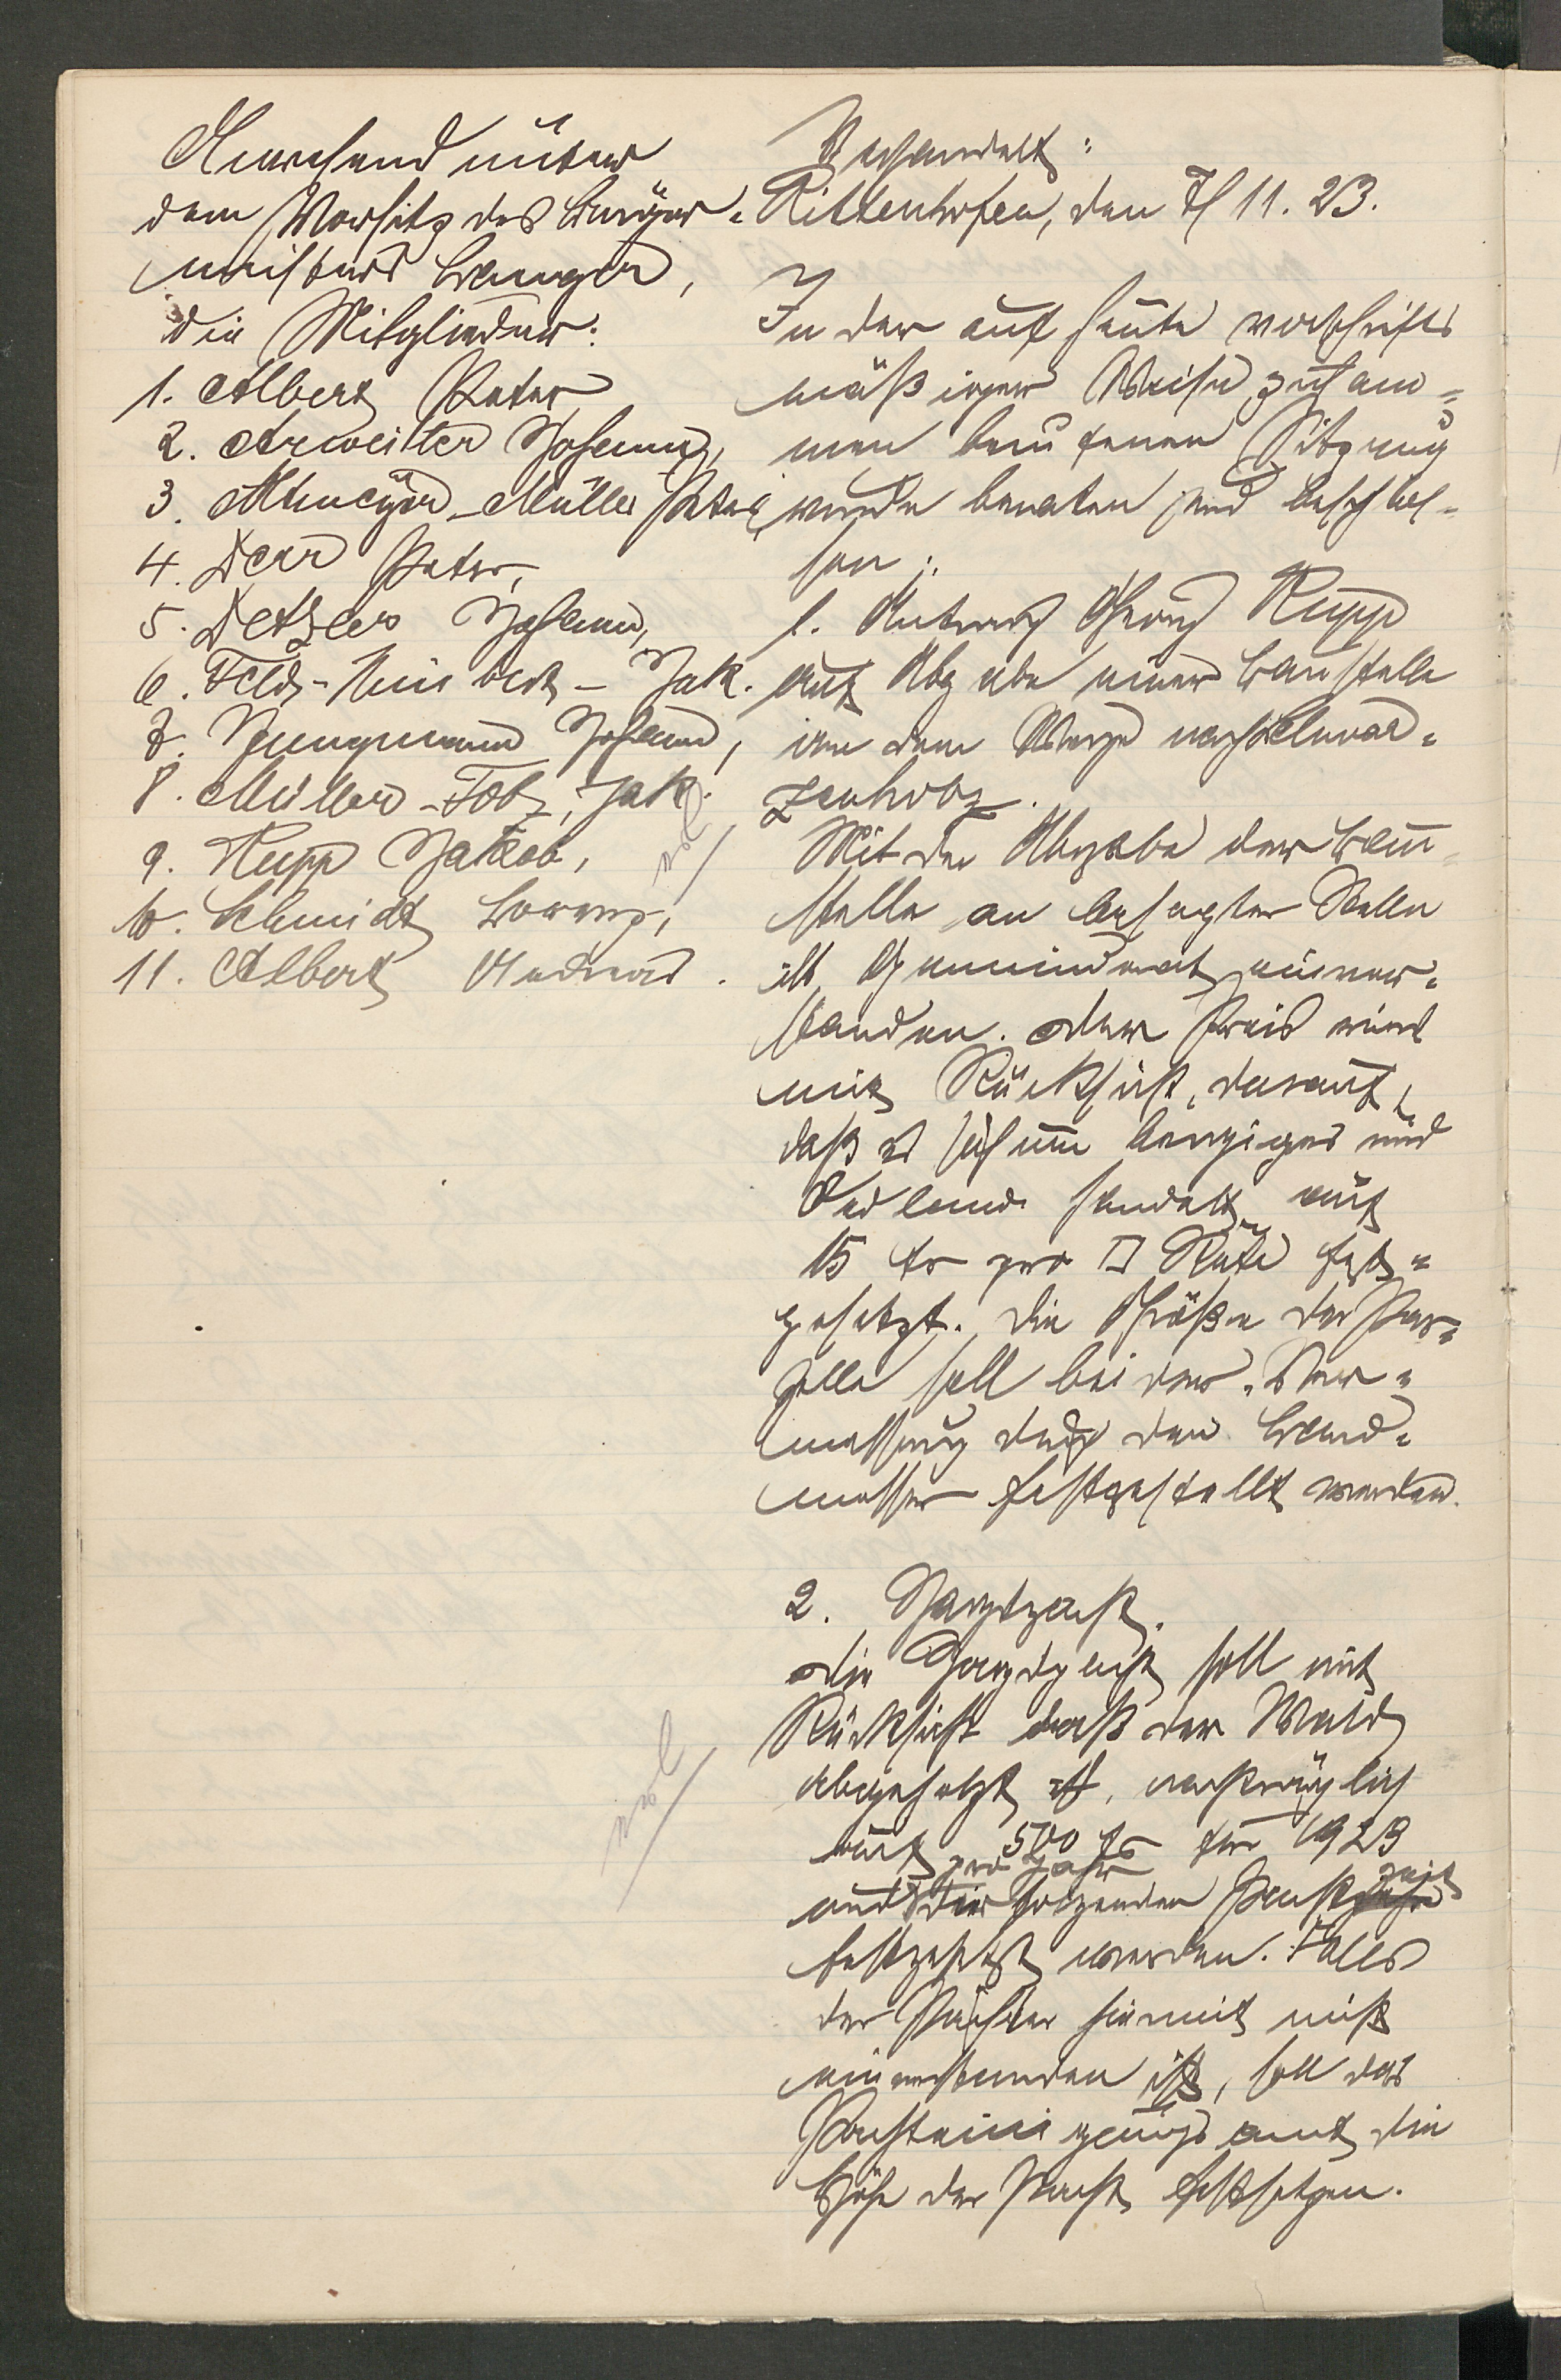 Anwesend unter
dem Vorsitz des Bürger-
meisters Langer,
die Mitglieder:
1. Albert Peter
2. Arweiler Johann,
3. Altmeyer-Müller Peter,
4. Derr Peter,
5. Detzler Johann,
6. Feld- - Jak.
7. Jungmann Johann,
8. Müller-Folz, Jak.
9. Rupp Jakob,
10. Schmidt Lorenz,
11. Albert Andreas.
Verhandelt:
Rittenhofen, den 7/11. 23.
In der auf heute vorschrifts
mäßiger Weise zusam-
men berufenen Sitzung
wurde beraten und beschlos-
sen:
1. Antrag Georg Rupp
auf Abgabe einer Baustelle
an dem Wege nach Schwar-
zenholz.
Mit der Abgabe der Bau-
stelle an besagter Stelle
ist Gemeinderat einver-
standen. Der Preis wird
mit Rücksicht, darauf,
daß es sich um bergiges und
Oedland handelt, auf
15 fr pro □ Rute fest-
gesetzt. Die Größe der Par-
zelle soll bei der Ver-
messung durch den Land-
messer festgestellt werden.
2. Jagdpacht.
Die Jagdpacht soll mit
Rücksicht daß der Wald
abgeholzt ist, nachträglich
auf 500 fr für 1923
pro Jahr
und die folgenden Pachtzeit
festgesetzt werden. Falls
der Pächter hiermit nicht
einverstanden ist, soll das
Pachteinigungsamt die
Höhe der Pacht festsetzen.